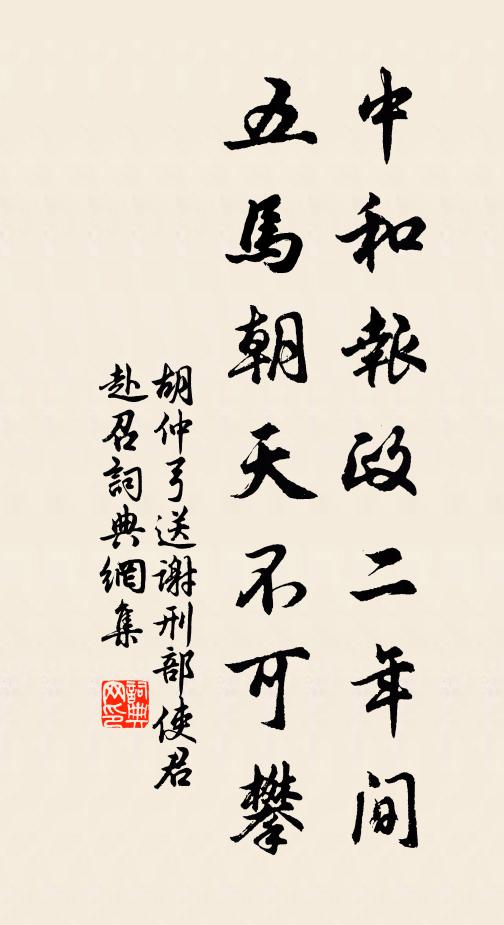 中和報政二年间
五馬朝天不可攀
胡仲弓送谢刑部使君
赴召詞典網集
詞典
网印